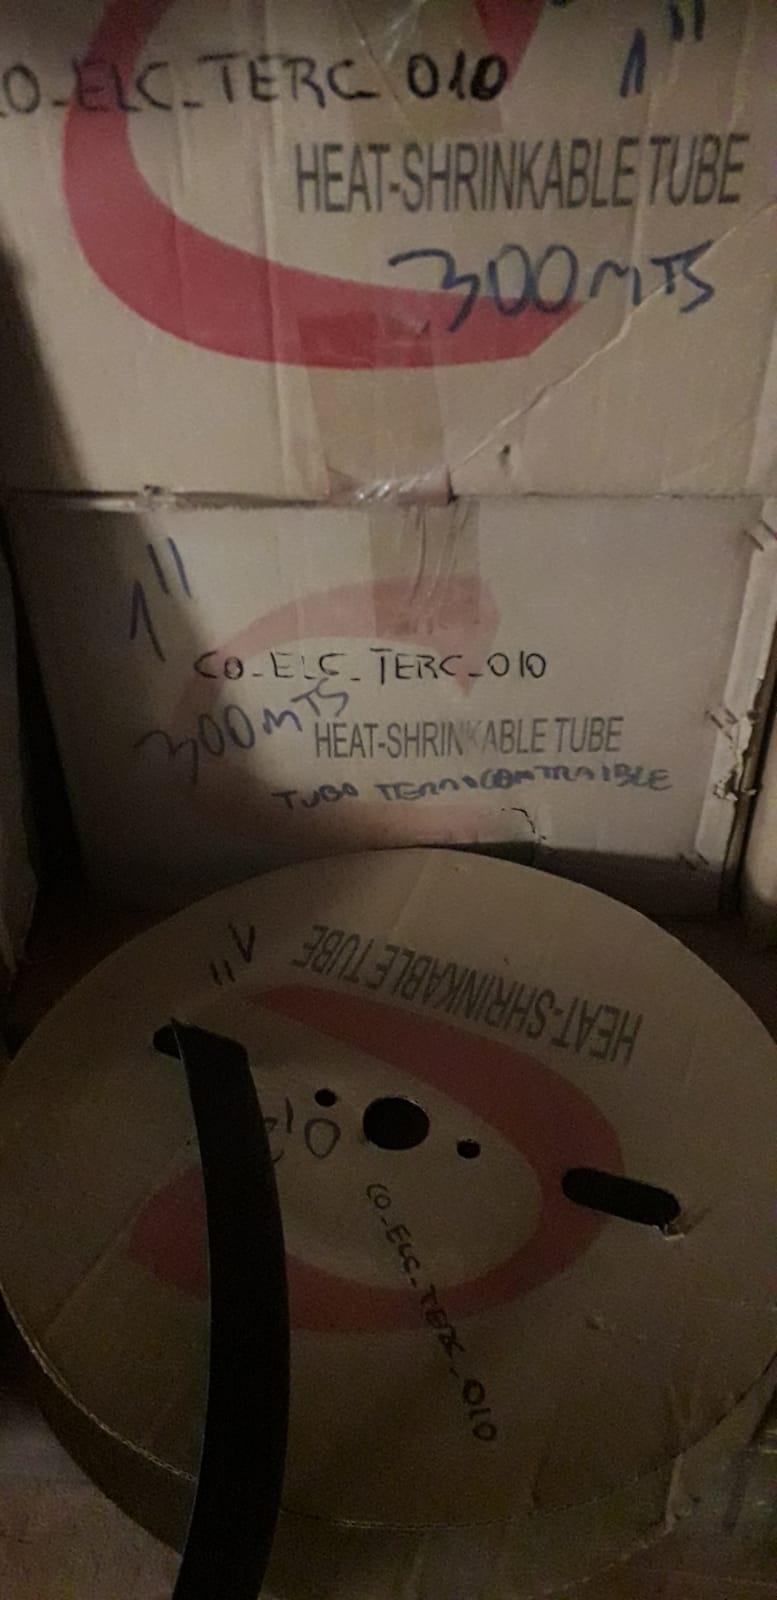 CO_ELC_TERC_010 1"
HEAT-SHRINKABLE TUBE
300MTS
1"
CO_ELC_TERC_010
300MTS
HEAT-SHRINKABLE TUBE
TUBO TERMOCONTRAIBLE
1"
HEAT-SHRINKABLE TUBE
CO_ELC_TERC_010